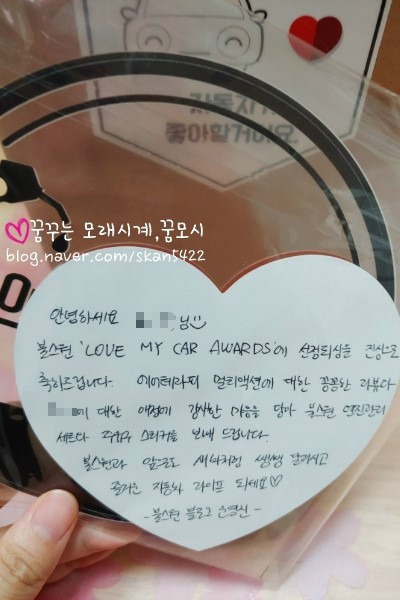 자동차가
좋아할거예요
꿈꾸는 모래시계,꿈모시
blog.naver.com/skan5422
안녕하세요 님
불스원 'LOVE MY CAR AWARDS'에 선정되심을 진심으로
축하드립니다. 에이테라피 멀티액션에 대한 꼼꼼한 리뷰와
에 대한 애정에 감사한 마음을 담아 불스원 엔진관리
세트와 주유구 스티커를 보내 드립니다.
불스원과 앞으로도 새차처럼 쌩쌩 달리시고
즐거운 자동차 라이프 되세요♡
- 불스원 블로그 운영진 -